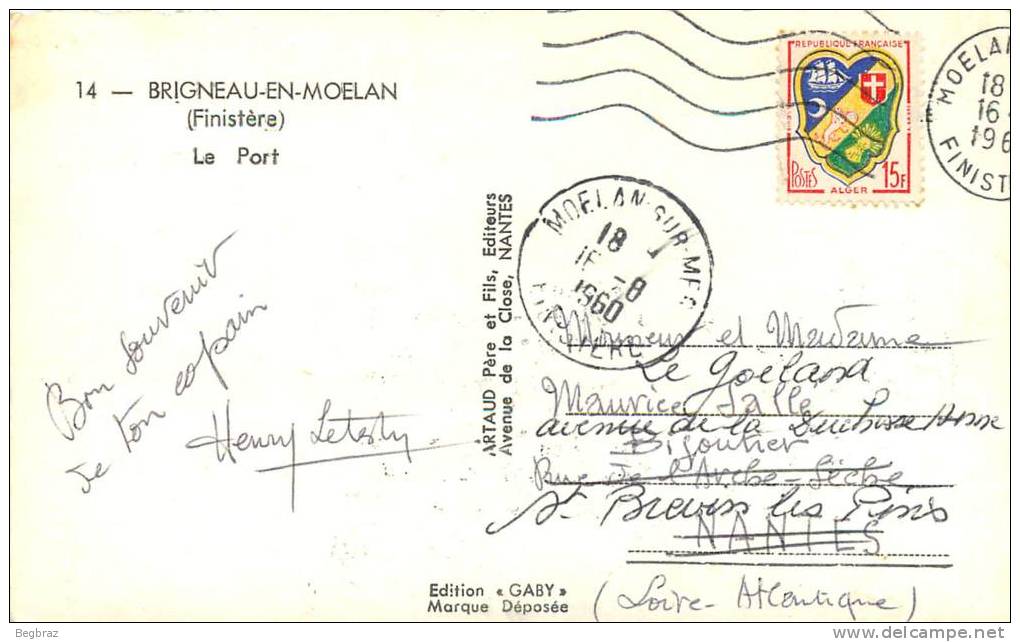 14 — BRIGNEAU-EN-MOELAN
(Finistère)
Le Port
Bon souvenir
de ton copain
Henry Letesty
ARTAUD Père et Fils, Editeurs
Avenue de la Close, NANTES
REPUBLIQUE FRANÇAISE
POSTES
15F
ALGER
MOELAN
18
16
196
FINIST
MOELAN-SUR-MER
18
16 -8
1960
FINISTERE
Monsieur et Madame
Le Goëland
Maurice Salle
avenue de la Duchesse Anne
Bijoutier
Rue de l'Arche-Sèche
St Brevin les Pins
NANTES
(Loire-Atlantique)
Edition « GABY »
Marque Déposée
Begbraz
www.delcampe.net